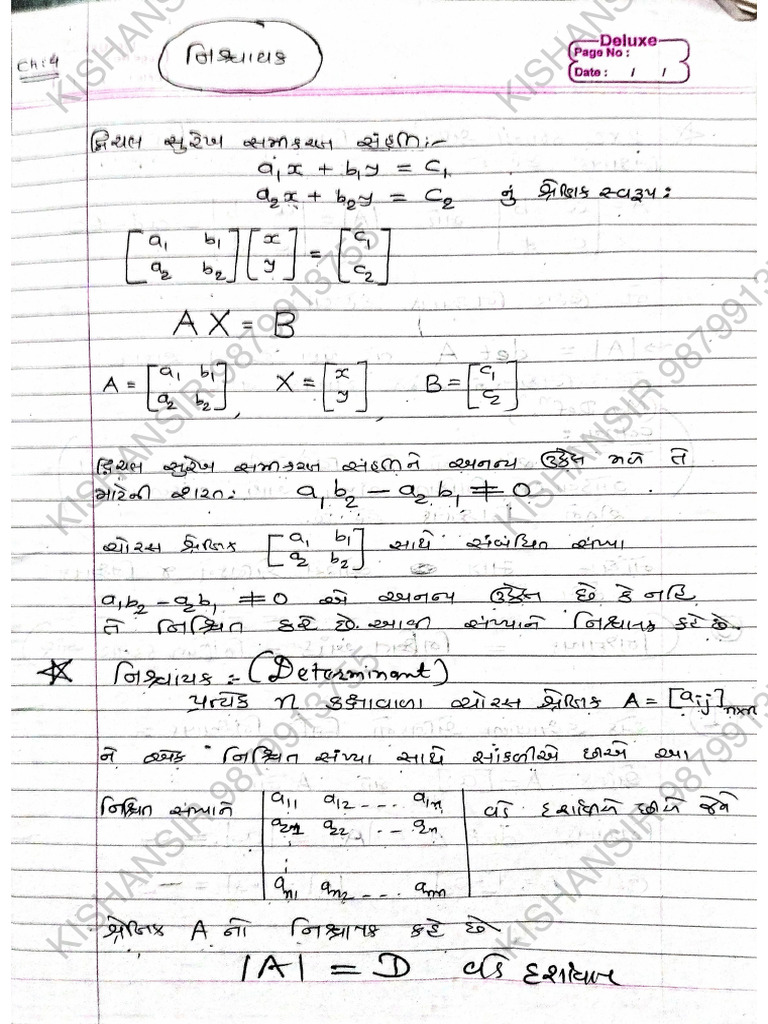 Ch: 4
નિશ્ચાયક
Deluxe
Page No :
Date : / /
દ્વિચલ સુરેખ સમીકરણ સંહતિ:-
a₁x + b₁y = c₁
a₂x + b₂y = c₂ નું શ્રેણિક સ્વરૂપ:
[a₁ b₁; a₂ b₂] [x; y] = [c₁; c₂]
AX = B
A = [a₁ b₁; a₂ b₂], X = [x; y], B = [c₁; c₂]
દ્વિચલ સુરેખ સમીકરણ સંહતિને અનન્ય ઉકેલ મળે તે
માટેની શરત: a₁b₂ - a₂b₁ ≠ 0
ચોરસ શ્રેણિક [a₁ b₁; a₂ b₂] સાથે સંબંધિત સંખ્યા
a₁b₂ - a₂b₁ ≠ 0 એ અનન્ય ઉકેલ છે કે નહિ
તે નિશ્ચિત કરે છે. આવી સંખ્યાને નિશ્ચાયક કહે છે.
☆ નિશ્ચાયક : (Determinant)
પ્રત્યેક n કક્ષાવાળા ચોરસ શ્રેણિક A = [aij]n×n
ને એક નિશ્ચિત સંખ્યા સાથે સાંકળીએ છીએ આ
નિશ્ચિત સંખ્યાને |a₁₁ a₁₂ .... a₁n| વડે દર્શાવીએ છીએ જેને
|a₂₁ a₂₂ .. a₂n|
⋮
|an₁ an₂ ... ann|
શ્રેણિક A નો નિશ્ચાયક કહે છે
|A| = D વડે દર્શાવાય
KISHANSIR 9879913755